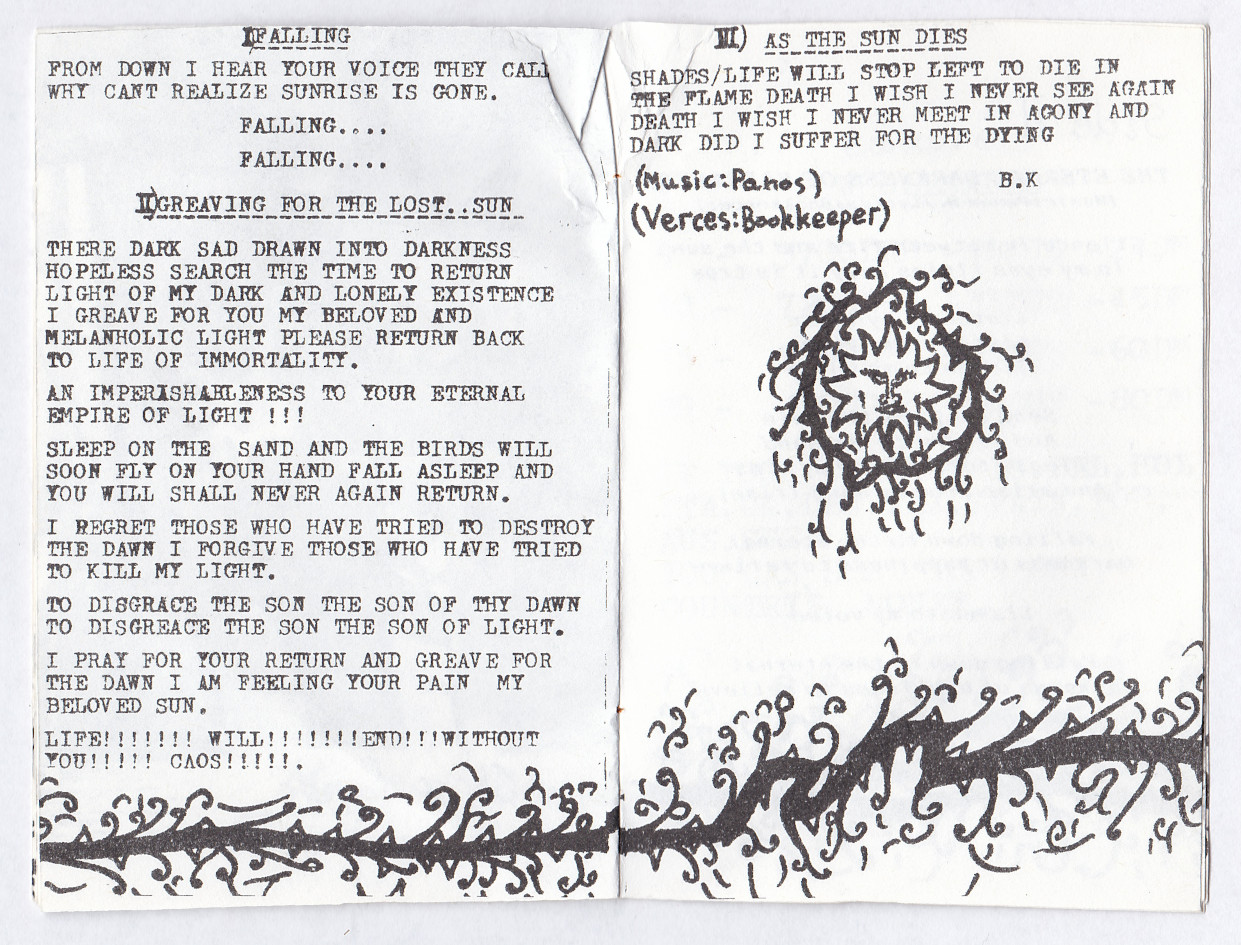 I)FALLING
FROM DOWN I HEAR YOUR VOICE THEY CALL
WHY CANT REALIZE SUNRISE IS GONE.
FALLING....
FALLING....
II)GREAVING FOR THE LOST..SUN
THERE DARK SAD DRAWN INTO DARKNESS
HOPELESS SEARCH THE TIME TO RETURN
LIGHT OF MY DARK AND LONELY EXISTENCE
I GREAVE FOR YOU MY BELOVED AND
MELANHOLIC LIGHT PLEASE RETURN BACK
TO LIFE OF IMMORTALITY.
AN IMPERISHABLENESS TO YOUR ETERNAL
EMPIRE OF LIGHT !!!
SLEEP ON THE SAND AND THE BIRDS WILL
SOON FLY ON YOUR HAND FALL ASLEEP AND
YOU WILL SHALL NEVER AGAIN RETURN.
I REGRET THOSE WHO HAVE TRIED TO DESTROY
THE DAWN I FORGIVE THOSE WHO HAVE TRIED
TO KILL MY LIGHT.
TO DISGRACE THE SON THE SON OF THY DAWN
TO DISGREACE THE SON THE SON OF LIGHT.
I PRAY FOR YOUR RETURN AND GREAVE FOR
THE DAWN I AM FEELING YOUR PAIN MY
BELOVED SUN.
LIFE!!!!!!! WILL!!!!!!!END!!!WITHOUT
YOU!!!!! CAOS!!!!!.
III) AS THE SUN DIES
SHADES/LIFE WILL STOP LEFT TO DIE IN
THE FLAME DEATH I WISH I NEVER SEE AGAIN
DEATH I WISH I NEVER MEET IN AGONY AND
DARK DID I SUFFER FOR THE DYING
(Music:Panos) B.K
(Verces:Bookkeeper)